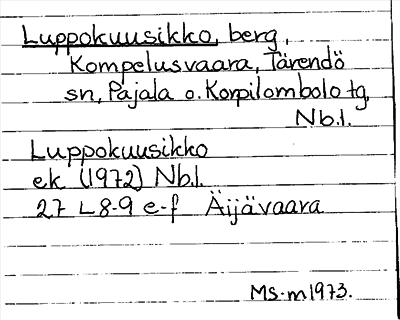 Luppokuusikko, berg,
Kompelusvaara, Tärendö
sn, Pajala o. Korpilombolo tg,
Nb.l.
Luppokuusikko
ek (1972) Nb.l.
27 L 8-9 e-f Äijävaara
Ms-m 1973.